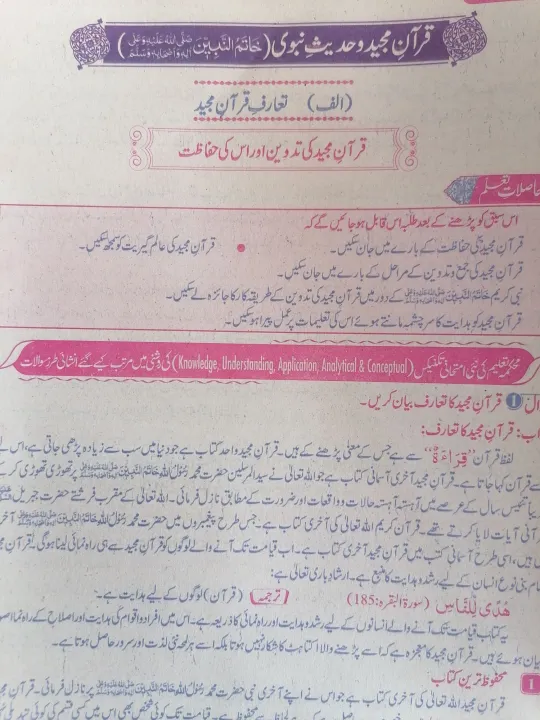 قرآنِ مجید و حدیثِ نبوی (خَاتَمُ النَّبِیّٖنَ صَلَّی اللّٰہُ عَلَیْہِ وَعَلٰی اٰلِہٖ وَاَصْحَابِہٖ وَسَلَّمَ)
(الف) تعارفِ قرآنِ مجید
قرآنِ مجید کی تدوین اور اس کی حفاظت
حاصلاتِ تعلم
اس سبق کو پڑھنے کے بعد طلبہ اس قابل ہو جائیں گے کہ
قرآنِ مجید کی حفاظت کے بارے میں جان سکیں۔ • قرآنِ مجید کی عالم گیریت کو سمجھ سکیں۔
قرآنِ مجید کی جمع و تدوین کے مراحل کے بارے میں جان سکیں۔
نبی کریم خَاتَمُ النَّبِیّٖنَ ﷺ کے دور میں قرآنِ مجید کی تدوین کے طریقہ کار کا جائزہ لے سکیں۔
قرآنِ مجید کو ہدایت کا سرچشمہ مانتے ہوئے اس کی تعلیمات پر عمل پیرا ہو سکیں۔
محکمہ تعلیم کی نئی امتحانی تکنیکس (Knowledge, Understanding, Application, Analytical & Conceptual) کی روشنی میں مرتب کیے گئے انشائی طرز سوالات
ال 1 قرآنِ مجید کا تعارف بیان کریں۔
اب: قرآنِ مجید کا تعارف:
لفظ قرآن ”قِرَاءَۃٌ“ سے ہے جس کے معنی پڑھنے کے ہیں۔ قرآنِ مجید واحد کتاب ہے جو دنیا میں سب سے زیادہ پڑھی جاتی ہے، اس لے
سے قرآن کہا جاتا ہے۔ قرآنِ مجید آخری آسمانی کتاب ہے جو اللہ تعالیٰ نے سید المرسلین حضرت محمد رَسُوْلُ اللّٰہِ خَاتَمُ النَّبِیّٖنَ ﷺ پر تھوڑی تھوڑی کر کے
یباً تیئیس سال کے عرصے میں آہستہ آہستہ حالات و واقعات اور ضرورت کے مطابق نازل فرمائی۔ اللہ تعالیٰ کے مقرب فرشتے حضرت جبریل
رآنی آیات لایا کرتے تھے۔ قرآنِ کریم اللہ تعالیٰ کی آخری کتاب ہے۔ جس طرح پیغمبروں میں حضرت محمد رَسُوْلُ اللّٰہِ خَاتَمُ النَّبِیّٖنَ ﷺ آخر
ہیں، اسی طرح آسمانی کتب میں قرآنِ مجید آخری کتاب ہے۔ اب قیامت تک آنے والے لوگوں کو قرآنِ مجید سے ہی راہ نمائی لینا ہوگی۔ قرآنِ مج
مام بنی نوع انسان کے لیے رشد و ہدایت کا منبع ہے۔ ارشادِ باری تعالیٰ ہے:
ھُدًی لِّلنَّاسِ (سورۃ البقرہ: 185) ترجمہ (قرآن) لوگوں کے لیے ہدایت ہے۔
یہ کتاب قیامت تک آنے والے انسانوں کے لیے رشد و ہدایت اور راہ نمائی کا ذریعہ ہے۔ اس میں افراد و اقوام کی ہدایت اور اصلاح کے راہ نما اصو
بیان ہوئے ہیں۔ قرآنِ مجید کا معجزہ ہے کہ اسے پڑھنے والا اکتاہٹ کا شکار نہیں ہوتا بلکہ اسے ہر لمحہ نئی لذت اور سرور حاصل ہوتا ہے۔
1 محفوظ ترین کتاب
قرآنِ مجید اللہ تعالیٰ کی آخری کتاب ہے جو اس نے اپنے آخری نبی حضرت محمد رَسُوْلُ اللّٰہِ خَاتَمُ النَّبِیّٖنَ ﷺ پر نازل فرمائی۔ قرآنِ مج
محفوظ ہے۔ قیامت تک کوئی شخص بھی اس میں کسی قسم کی کوئی تبدیلی